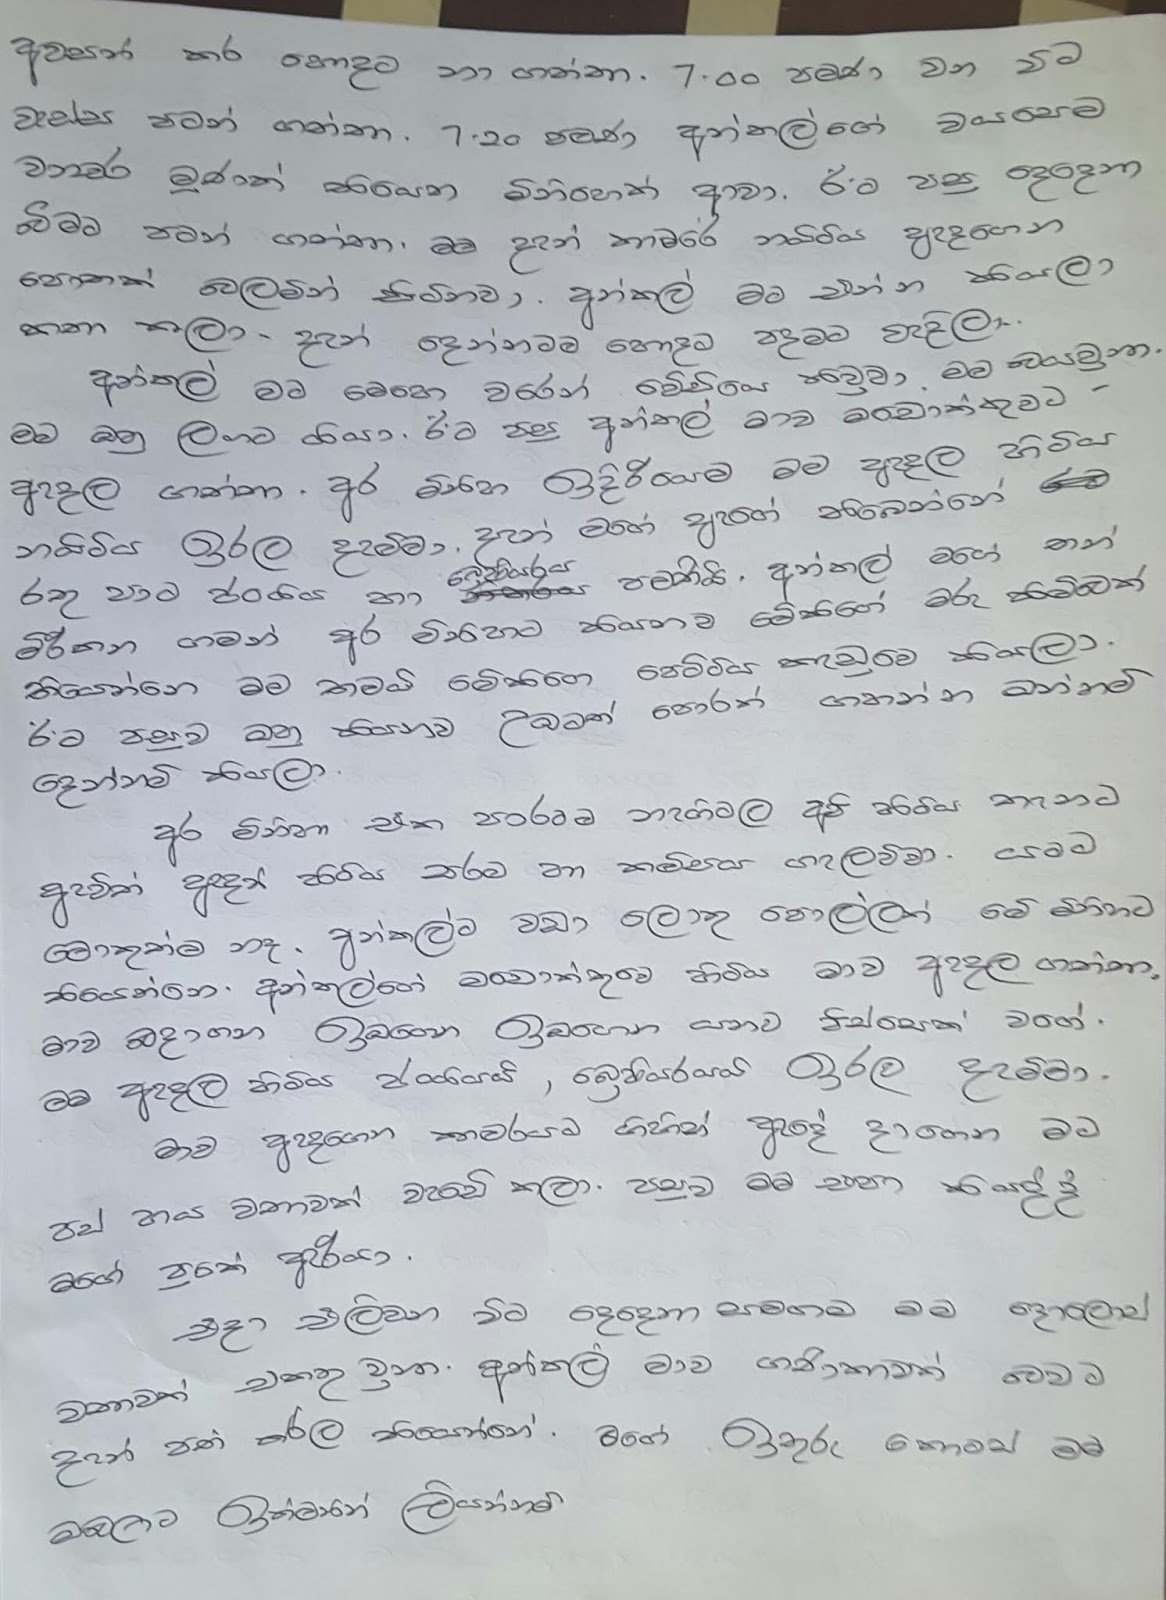 අවසන් කර හොදට නා ගත්තා. 7.00 පමණ වන විට
වැස්ස පටන් ගත්තා. 7.20 පමණ අන්කල්ගේ වයසෙම
මූණක් තියෙන මිනිහෙක් ආවා. ඊට පසු දෙදෙනා
බීමට පටන් ගත්තා. මම දැන් කාමරේ නයිටිය ඇදගෙන
පොතක් බලමින් සිටිනවා. අන්කල් මට එන්න කියලා
කතා කලා. දැන් දෙන්නටම හොදට පදමට වැදිලා.
අන්කල් මට මෙහෙ වරෙන් කිව්වා. මම
මට ඔහු ලගට ගියා. ඊට පසු අන්කල් මාව ඔඩොක්කුවට
ඇදල ගත්තා. අර මිනිහ ඉදිරියෙම මම ඇදල හිටිය
නයිටිය ඉරල දැම්මා. දැන් මගේ ඇගේ තිබෙන්නේ
රතු පාට ජංගිය හා බ්‍රෙසියරය පමණයි. අන්කල් මගේ තන්
මිරිකන ගමන් අර මිනිහට කියනව මේකිගේ මරු
තියෙන්නෙ මම තමයි මේකිගෙ කැඩුවෙ කියලා.
ඊට පසුව ඔහු කියනව උඹටත් හොරන් ගහන්න ඔන්නම්
දෙන්නම් කියලා.
අර මිනිහා එක පාරටම නැගිටල අපි හිටිය තැනට
ඇවිත් ඇදන් හිටිය සරම හා කමිසය ගැලව්වා. යටට
මොකුත්ම නෑ. අන්කල්ට වඩා ලොකු පොල්ලක් මේ මිනිහට
තියෙන්නෙ. අන්කල්ගේ ඔඩොක්කුවෙ හිටිය මාව ඇදල ගත්තා.
මාව බදාගන ඉඹගෙන ඉඹගෙන යනව පිස්සෙක් වගේ.
මම ඇදල හිටිය ජංගියයි, බ්‍රෙසියරයයි ඉරල දැම්මා.
මාව ඇදගෙන කාමරයට ගිහින් ඇදේ දාගෙන මට
පස් හය වතාවක් වැඩේ කලා. පසුව මම එපා කියද්දි
මගේ පුකේ ඇරියා.
එදා එලිවන විට දෙදෙනා සමගම මම දොලොස්
වතාවක් එකතු වුනා. අන්කල් මාව ගණිකාවක් බවට
දැන් පත් කරල තියෙන්නේ. මගේ ඉතුරු කොටස් මම
ඔබලාට ඉක්මනින් ලියන්නම්